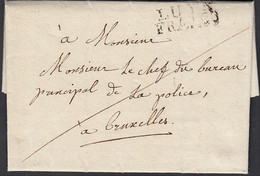 à Monsieur
Monsieur le chef du bureau
principal de la police,
à Bruxelles.